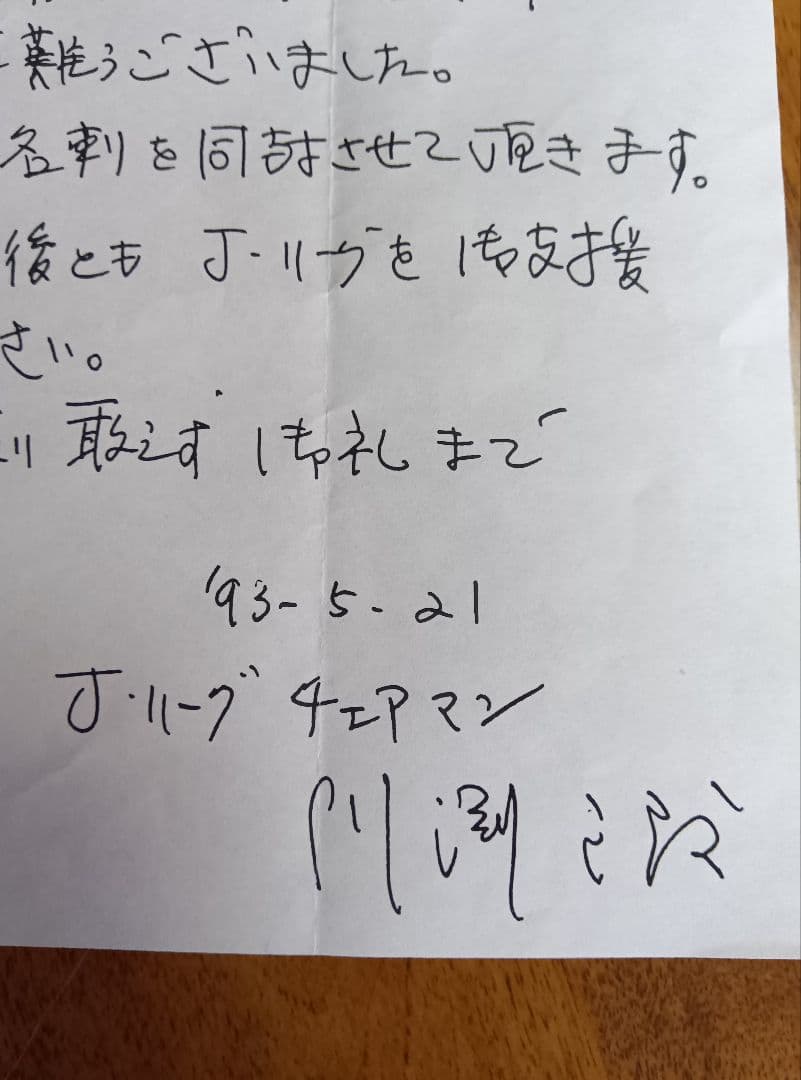 難うございました。
名刺を同封させて頂きます。
後とも J・リーグを御支援
さい。
取り敢えず御礼まで
'93-5-21
J・リーグ チェアマン
川淵三郎